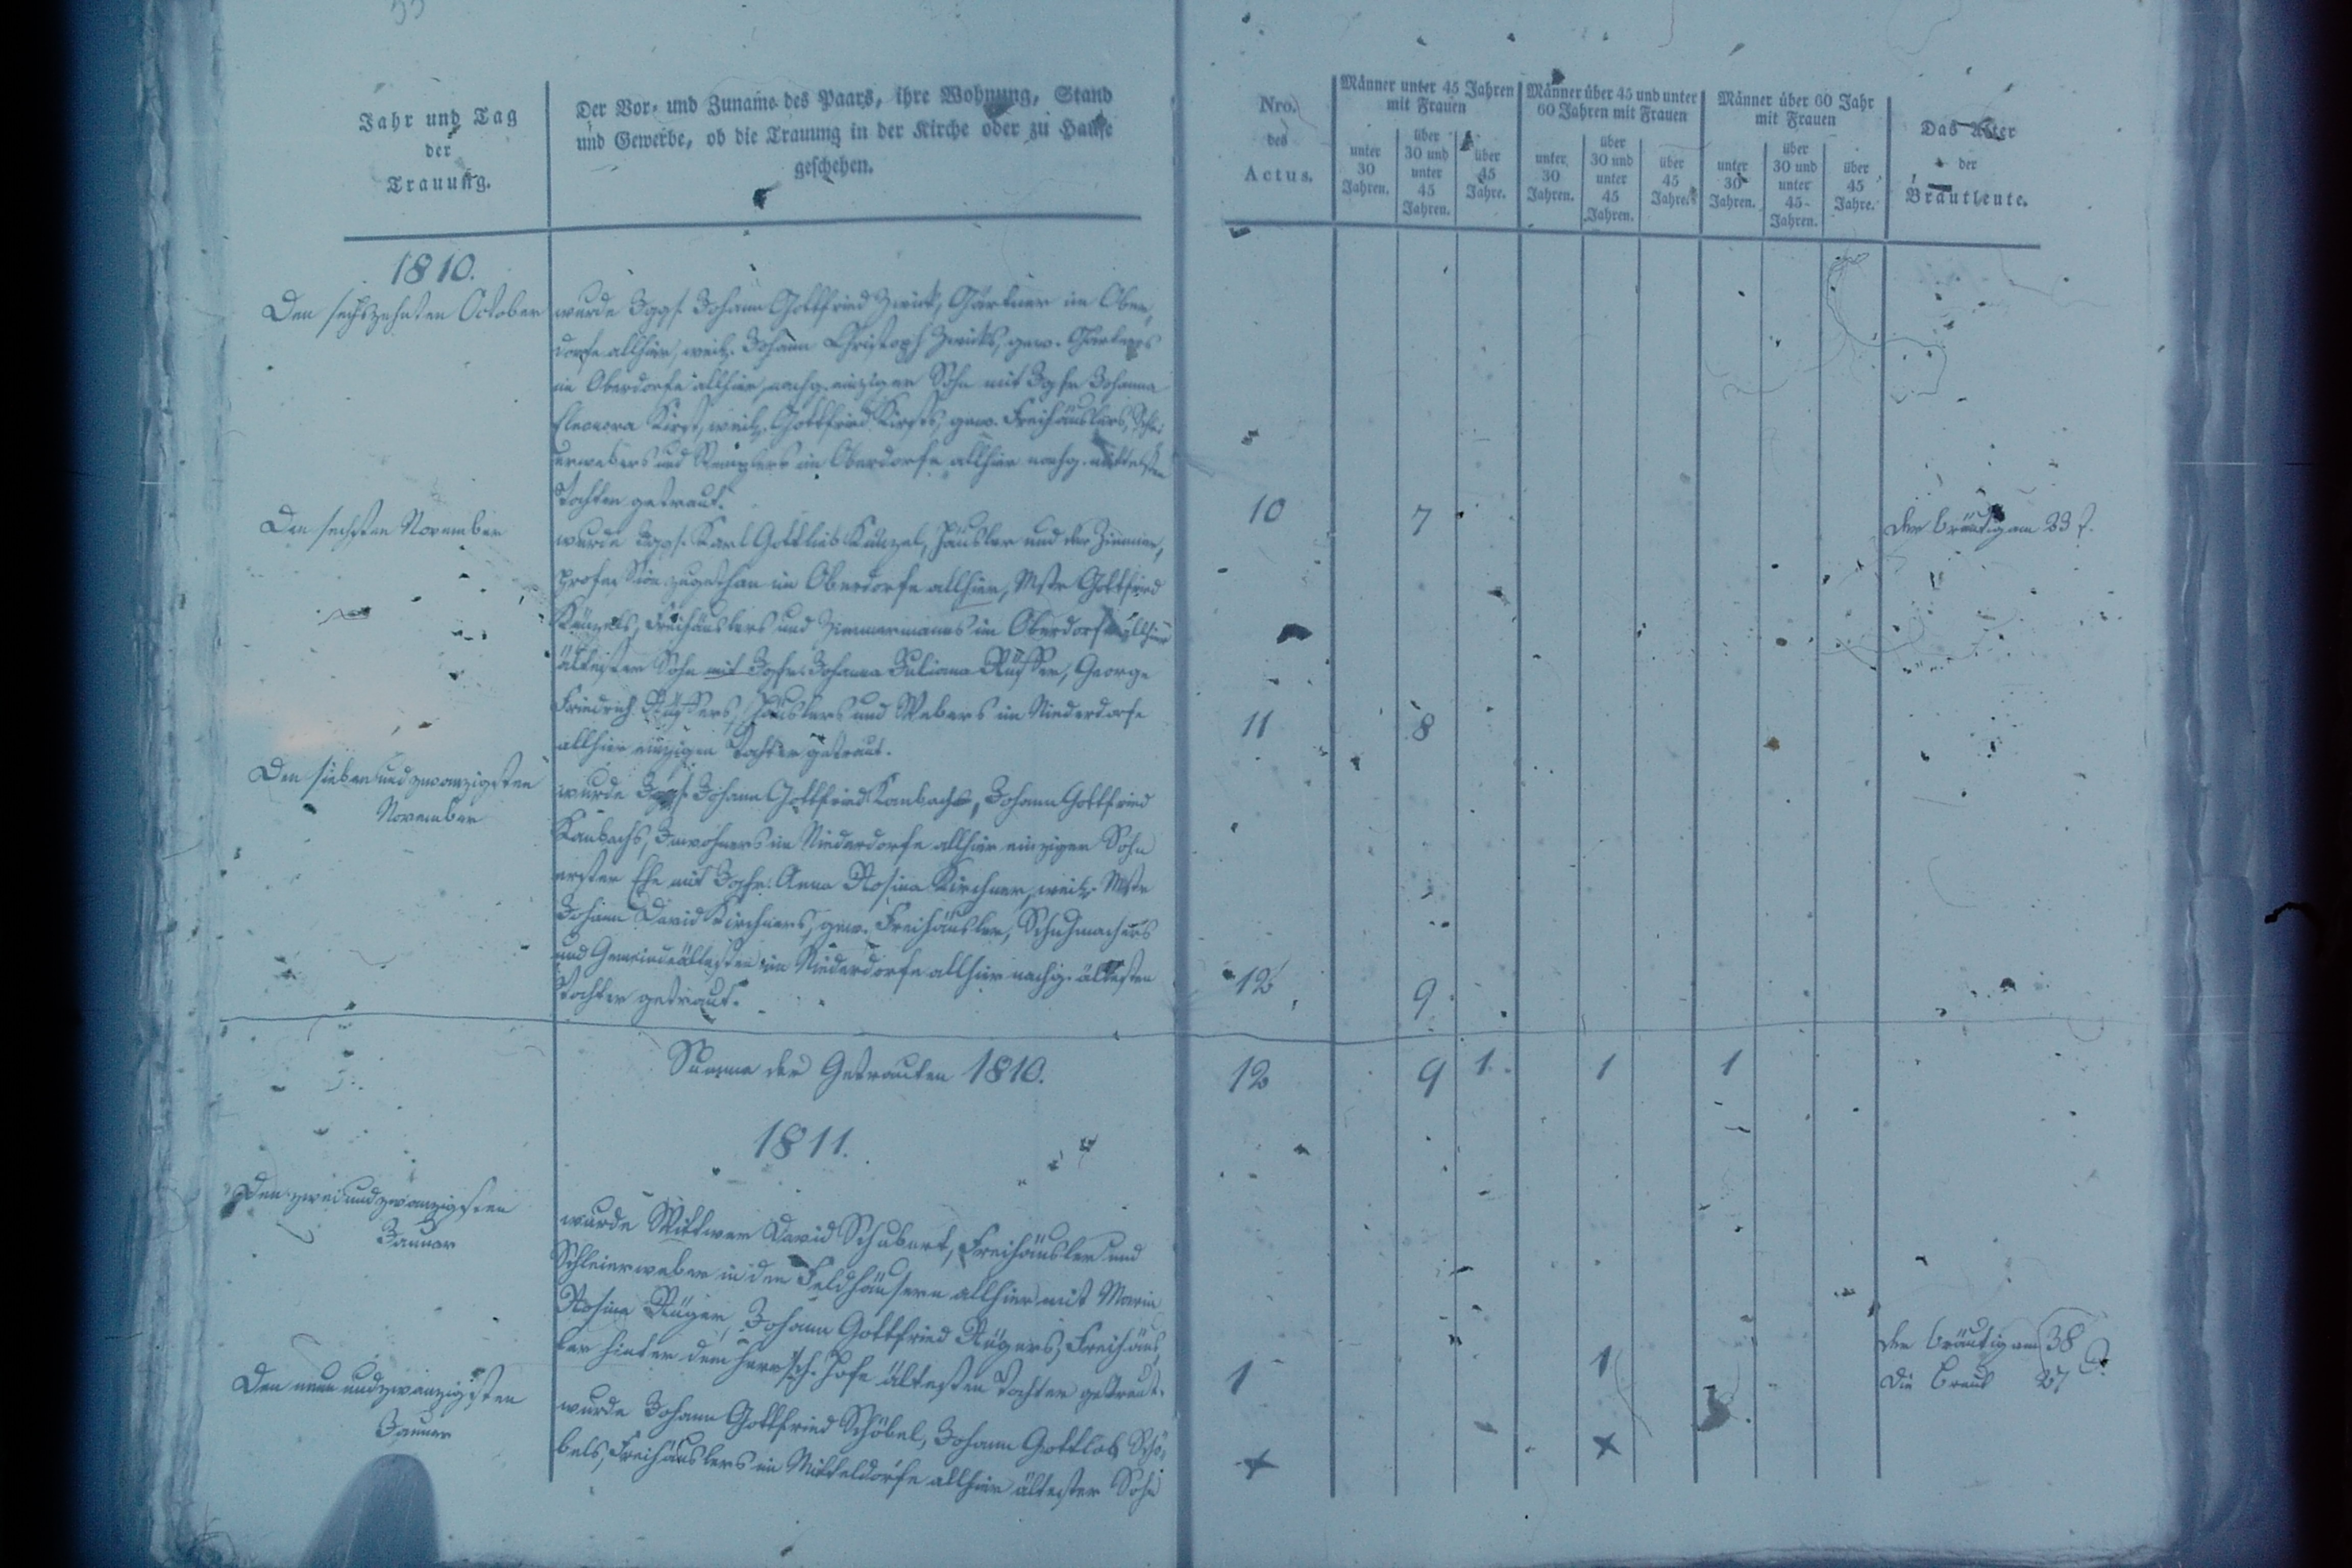 Jahr und Tag
der
Trauung.
Der Vor- und Zuname des Paars, ihre Wohnung, Stand
und Gewerbe, ob die Trauung in der Kirche oder zu Hause
geschehen.
Nro.
des
Actus.
Männer unter 45 Jahren
mit Frauen
unter
30
Jahren.
über
30 und
unter
45
Jahren.
über
45
Jahre.
Männer über 45 und unter
60 Jahren mit Frauen
unter
30
Jahren.
über
30 und
unter
45
Jahren.
über
45
Jahre.
Männer über 60 Jahr
mit Frauen
unter
30
Jahren.
über
30 und
unter
45
Jahren.
über
45
Jahre.
Das Alter
der
Brautleute.
1810.
Den sechszehnten October
wurde Jggs. Johann Gottfried Zwick, Gärtner im Ober-
dorfe allhier, weil. Johann Christoph Zwicks, gew. Gärtners
im Oberdorfe allhier, nachg. einziger Sohn mit Jgfr. Johanna
Eleonora Kirst, weil. Gottfried Kirsts, gew. Freihäuslers, Schlei-
erwebers und im Oberdorfe allhier nachg. mittelsten
Tochter getraut.
10 7 Der Bräutigam 23 J.
Den sechsten November
wurde Jggs. Karl Gottlieb Künzel, Häusler und der Zimmer-
profession zugethan im Oberdorfe allhier, Mstr Gottfried
Künzels, Freihäuslers und Zimmermanns im Oberdorfe allhier
ältester Sohn mit Jgfr. Johanna Juliana Rüffer, George
Friedrich Rüffers, Häuslers und Webers im Niederdorfe
allhier einzigen Tochter getraut.
11 8
Den sieben und zwanzigsten
November
wurde Jggs. Johann Gottfried Kaubachs, Johann Gottfried
Kaubachs, Inwohners im Niederdorfe allhier einziger Sohn
erster Ehe mit Jgfr. Anna Rosina Kirchner, weil. Mstr
Johann David Kirchners, gew. Freihäusler, Schuhmachers
und Gemeindeältesten im Niederdorfe allhier nachg. ältesten
Tochter getraut.
12 9
Summa der Getrauten 1810.
12 9 1 1 1
1811.
Den zwei und zwanzigsten
Januar
wurde Wittwer David Schubert, Freihäusler und
Schleierweber in den Feldhäusern allhier mit Maria
Rosina Rüger, Johann Gottfried Rügers, Freihäus-
ler hinter dem herrsch. Hofe ältesten Tochter getraut.
1 1
Der Bräutigam 38
Die Braut 27 J.
Den neun und zwanzigsten
Januar
wurde Johann Gottfried Schöbel, Johann Gottlob Schö-
bels, Freihäuslers im Mitteldorfe allhier ältester Sohn